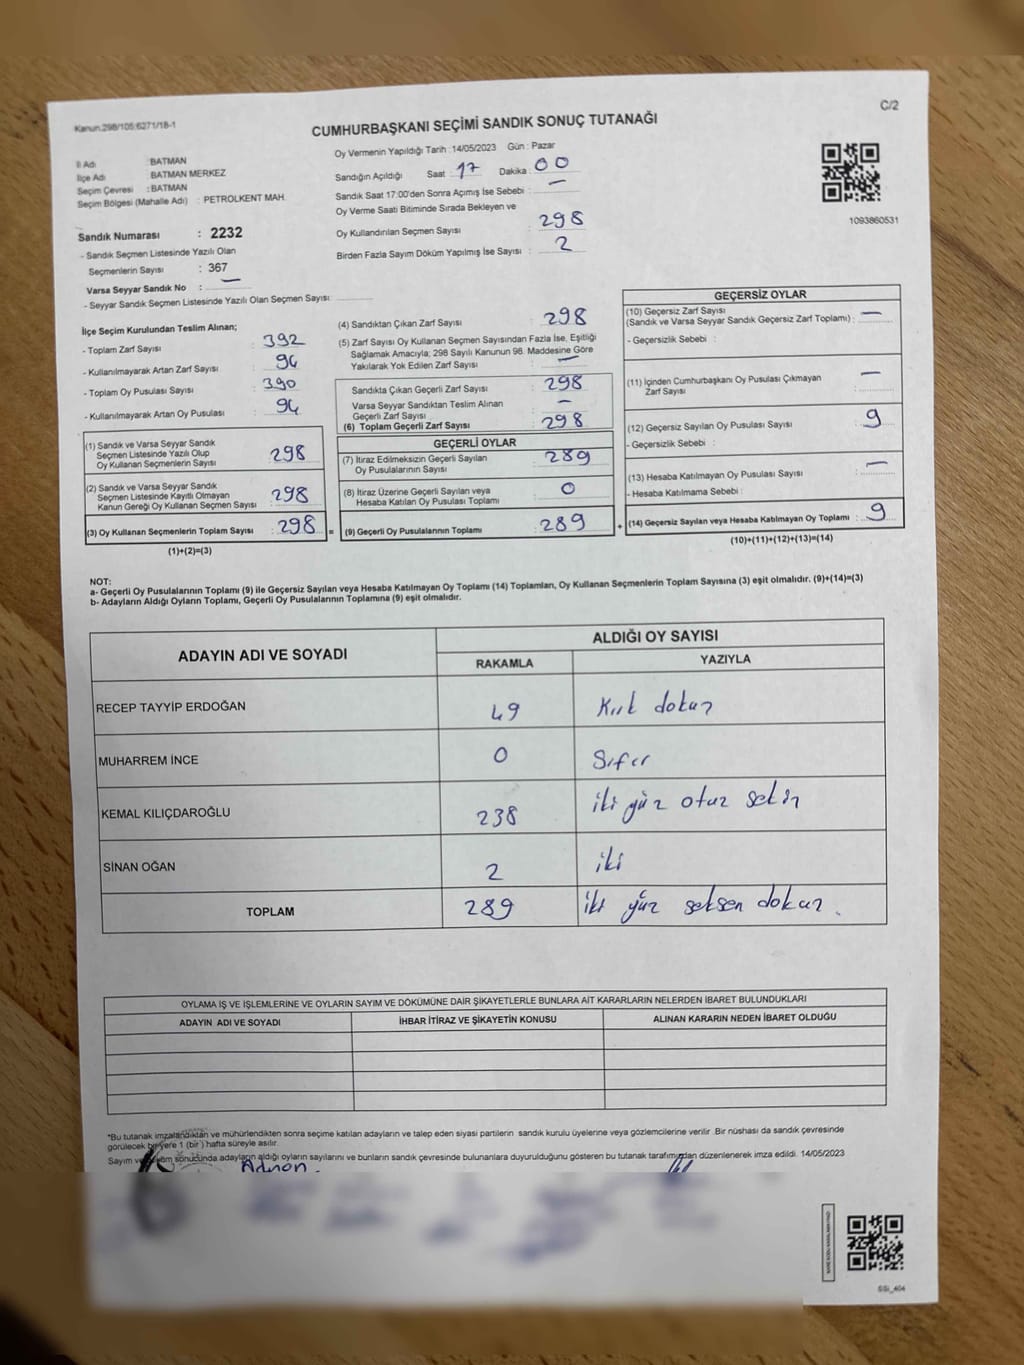 Kanun:298/105:6271/18-1
C/2
CUMHURBAŞKANI SEÇİMİ SANDIK SONUÇ TUTANAĞI
İl Adı : BATMAN
İlçe Adı BATMAN MERKEZ
Seçim Çevresi : BATMAN
Seçim Bölgesi (Mahalle Adı) : PETROLKENT MAH.
Sandık Numarası : 2232
- Sandık Seçmen Listesinde Yazılı Olan
Seçmenlerin Sayısı : 367
Varsa Seyyar Sandık No : —
- Seyyar Sandık Seçmen Listesinde Yazılı Olan Seçmen Sayısı:
Oy Vermenin Yapıldığı Tarih : 14/05/2023 Gün : Pazar
Sandığın Açıldığı Saat : 17 Dakika : 00
Sandık Saat 17:00'den Sonra Açımış İse Sebebi : —
Oy Verme Saati Bitiminde Sırada Bekleyen ve
Oy Kullandırılan Seçmen Sayısı : 298
Birden Fazla Sayım Döküm Yapılmış İse Sayısı : 2
1093860531
İlçe Seçim Kurulundan Teslim Alınan;
- Toplam Zarf Sayısı : 392
- Kullanılmayarak Artan Zarf Sayısı : 94
- Toplam Oy Pusulası Sayısı : 390
- Kullanılmayarak Artan Oy Pusulası : 94
(1) Sandık ve Varsa Seyyar Sandık
Seçmen Listesinde Yazılı Olup
Oy Kullanan Seçmenlerin Sayısı : 298
(2) Sandık ve Varsa Seyyar Sandık
Seçmen Listesinde Kayıtlı Olmayan
Kanun Gereği Oy Kullanan Seçmen Sayısı : 298
(3) Oy Kullanan Seçmenlerin Toplam Sayısı : 298 =
(1)+(2)=(3)
(4) Sandıktan Çıkan Zarf Sayısı : 298
(5) Zarf Sayısı Oy Kullanan Seçmen Sayısından Fazla İse, Eşitliği
Sağlamak Amacıyla; 298 Sayılı Kanunun 98. Maddesine Göre
Yakılarak Yok Edilen Zarf Sayısı : —
Sandıkta Çıkan Geçerli Zarf Sayısı : 298
Varsa Seyyar Sandıktan Teslim Alınan
Geçerli Zarf Sayısı : —
(6) Toplam Geçerli Zarf Sayısı : 298
GEÇERLİ OYLAR
(7) İtiraz Edilmeksizin Geçerli Sayılan
Oy Pusulalarının Sayısı : 289
(8) İtiraz Üzerine Geçerli Sayılan veya
Hesaba Katılan Oy Pusulası Toplamı : 0
(9) Geçerli Oy Pusulalarının Toplamı : 289 +
GEÇERSİZ OYLAR
(10) Geçersiz Zarf Sayısı
(Sandık ve Varsa Seyyar Sandık Geçersiz Zarf Toplamı) : —
- Geçersizlik Sebebi :
(11) İçinden Cumhurbaşkanı Oy Pusulası Çıkmayan
Zarf Sayısı : —
(12) Geçersiz Sayılan Oy Pusulası Sayısı : 9
- Geçersizlik Sebebi :
(13) Hesaba Katılmayan Oy Pusulası Sayısı : —
- Hesaba Katılmama Sebebi :
(14) Geçersiz Sayılan veya Hesaba Katılmayan Oy Toplamı : 9
(10)+(11)+(12)+(13)=(14)
NOT:
a- Geçerli Oy Pusulalarının Toplamı (9) ile Geçersiz Sayılan veya Hesaba Katılmayan Oy Toplamı (14) Toplamları, Oy Kullanan Seçmenlerin Toplam Sayısına (3) eşit olmalıdır. (9)+(14)=(3)
b- Adayların Aldığı Oyların Toplamı, Geçerli Oy Pusulalarının Toplamına (9) eşit olmalıdır.
ADAYIN ADI VE SOYADI ALDIĞI OY SAYISI
RAKAMLA YAZIYLA
RECEP TAYYİP ERDOĞAN 49 Kırk dokuz
MUHARREM İNCE 0 Sıfır
KEMAL KILIÇDAROĞLU 238 iki yüz otuz sekiz
SİNAN OĞAN 2 iki
TOPLAM 289 iki yüz seksen dokuz.
OYLAMA İŞ VE İŞLEMLERİNE VE OYLARIN SAYIM VE DÖKÜMÜNE DAİR ŞİKAYETLERLE BUNLARA AİT KARARLARIN NELERDEN İBARET BULUNDUKLARI
ADAYIN ADI VE SOYADI İHBAR İTİRAZ VE ŞİKAYETİN KONUSU ALINAN KARARIN NEDEN İBARET OLDUĞU
*Bu tutanak imzalandıktan ve mühürlendikten sonra seçime katılan adayların ve talep eden siyasi partilerin sandık kurulu üyelerine veya gözlemcilerine verilir. Bir nüshası da sandık çevresinde
görülecek bir yere 1 (bir ) hafta süreyle asılır.
Sayım ve döküm sonucunda adayların aldığı oyların sayılarını ve bunların sandık çevresinde bulunanlara duyurulduğunu gösteren bu tutanak tarafımızdan düzenlenerek imza edildi. 14/05/2023
Adnan.
SSi_404